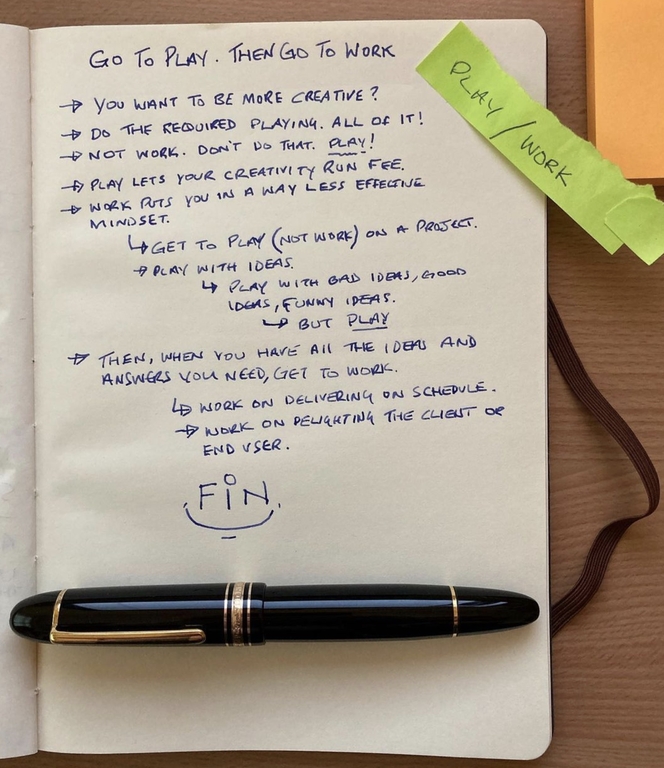 GO TO PLAY. THEN GO TO WORK
PLAY/WORK
→ YOU WANT TO BE MORE CREATIVE?
→ DO THE REQUIRED PLAYING. ALL OF IT!
→ NOT WORK. DON'T DO THAT. PLAY!
→ PLAY LETS YOUR CREATIVITY RUN FEE.
→ WORK PUTS YOU IN A WAY LESS EFFECTIVE
MINDSET.
↳ GET TO PLAY (NOT WORK) ON A PROJECT.
→ PLAY WITH IDEAS.
↳ PLAY WITH BAD IDEAS, GOOD
IDEAS, FUNNY IDEAS.
↳ BUT PLAY
→ THEN, WHEN YOU HAVE All THE IDEAS AND
ANSWERS YOU NEED, GET TO WORK.
↳ WORK ON DELIVERING ON SCHEDULE.
→ WORK ON DELIGHTING THE CLIENT OR
END USER.
FiN